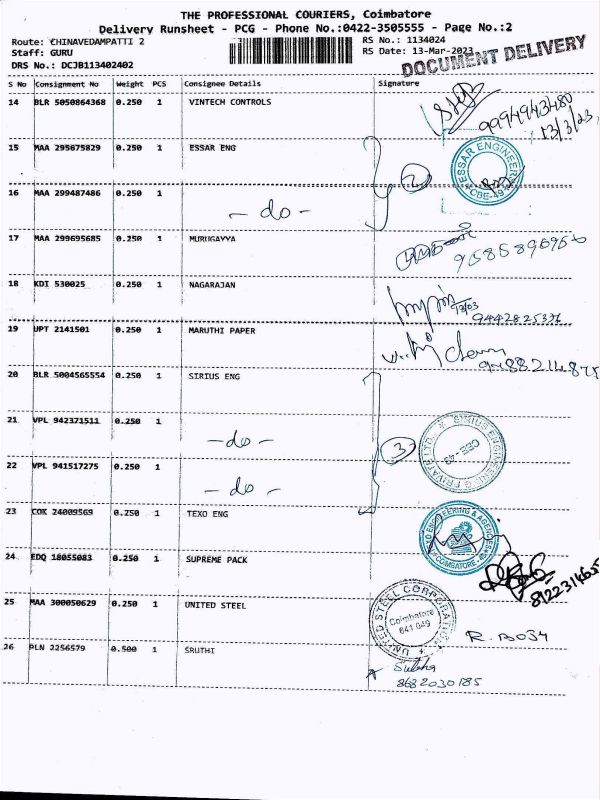 THE PROFESSIONAL COURIERS, Coimbatore
Delivery Runsheet - PCG - Phone No.:0422-3505555 - Page No.:2
Route: CHINAVEDAMPATTI 2
Staff: GURU
DRS No.: DCJB113402402
RS No.: 1134024
RS Date: 13-Mar-2023
DOCUMENT DELIVERY
S No Consignment No Weight PCS Consignee Details Signature
14 BLR 5050864368 0.250 1 VINTECH CONTROLS
9994943480
13/3/23
15 MAA 295675829 0.250 1 ESSAR ENG
2
ESSAR ENGINEER
CBE-49
16 MAA 299487486 0.250 1 - do -
17 MAA 299695685 0.250 1 MURUGAYYA
18 KDI 530025 0.250 1 NAGARAJAN
13/03
9442825336
19 UPT 2141501 0.250 1 MARUTHI PAPER
20 BLR 5004565554 0.250 1 SIRIUS ENG
21 VPL 942371511 0.250 1 - do -
3
SIRIUS ENGINEERING PRIVATE LTD.
CBE-49
22 VPL 941517275 0.250 1 - do -
23 COK 24009569 0.250 1 TEXO ENG
TEXO ENGINEERING & AGENCIES
COIMBATORE
24 EDQ 18055083 0.250 1 SUPREME PACK
8122314655
25 MAA 300050629 0.250 1 UNITED STEEL
UNITED STEEL CORPORATION
Coimbatore
641 049
26 PLN 2256579 0.500 1 SRUTHI
8682030185